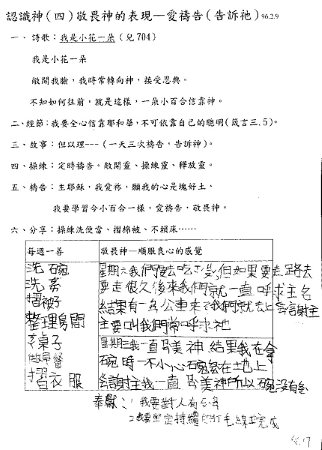 認識神(四)敬畏神的表現—愛禱告(告訴祂) 96.2.9
一、詩歌：我是小花一朵 (兒704)
我是小花一朵
敞開我臉，我時常轉向神，接受恩典。
不知如何往前，就是這樣，一朵小百合信靠神。
二、經節：我要全心信靠耶和華，不可依靠自己的聰明(箴言三.5)。
三、故事：但以理---(一天三次禱告，告訴神)。
四、操練：定時禱告。敞開靈、操練靈、釋放靈。
五、禱告：主耶穌，我愛祢，願我的心是塊好土。
我要學習今小百合一樣，愛禱告，敬畏神。
六、分享：操練洗便當、摺棉被、不頑床……
每週一善
敬畏神—順服良心的感覺
洗碗
洗
摺被子
整理房間
桌子
做早餐
摺衣服
我們 吃 但如果要走路去
要走很久後來我們就一直呼求主名
結果有一台公車來了我們就去上 謝主
主要叫我們常呼求祂
星期三我一直讚美神 結果我在拿
碗時一不小心碗 在地上
謝主我一直讚美神所以碗沒有
我要對人有
持續 毛線 完成